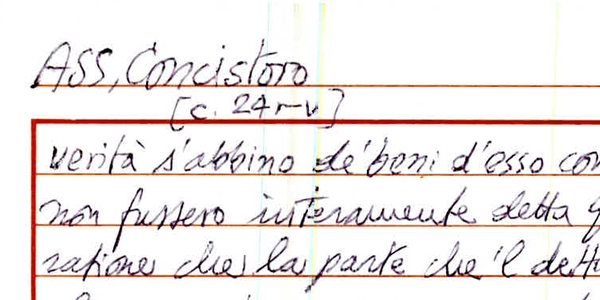 ASS, Concistoro
[c. 24r-v]
verità s'abbino de' beni d'esso con
non fussero interamente detta q
ratione che la parte che 'l detto